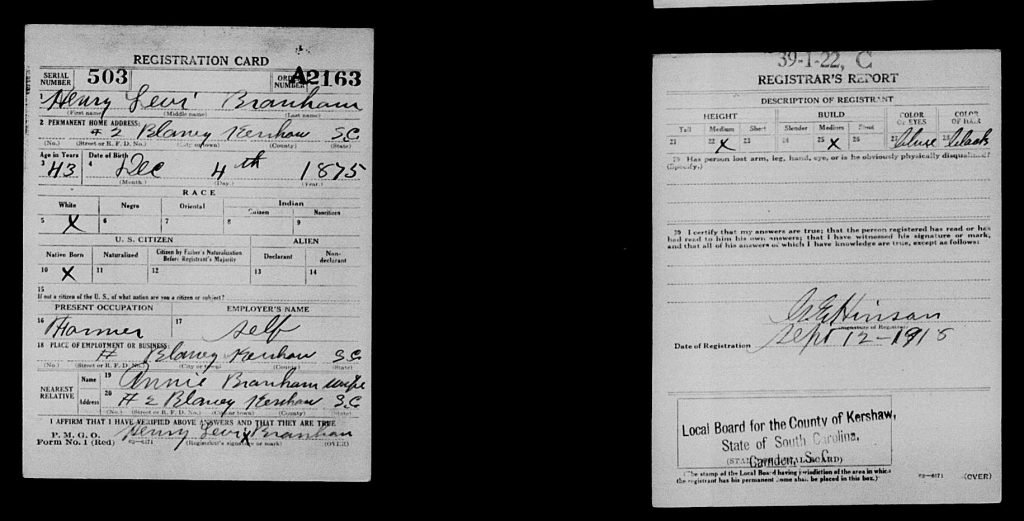 REGISTRATION CARD
SERIAL NUMBER 503 ORDER NUMBER A2163
1 Henry Levi Branham
(First name) (Middle name) (Last name)
2 PERMANENT HOME ADDRESS:
# 2 Blaney Kershaw S.C.
(No.) (Street or R. F. D. No.) (City or town) (County) (State)
Age in Years Date of Birth
3 43 4 Dec 4th 1875
(Month.) (Day.) (Year.)
RACE
White Negro Oriental Indian
Citizen Noncitizen
5 X 6 7 8 9
U. S. CITIZEN ALIEN
Native Born Naturalized Citizen by Father's Naturalization Before Registrant's Majority Declarant Non-declarant
10 X 11 12 13 14
15
If not a citizen of the U. S., of what nation are you a citizen or subject?
PRESENT OCCUPATION EMPLOYER'S NAME
16 Farmer 17 self
18 PLACE OF EMPLOYMENT OR BUSINESS:
# Blaney Kershaw S.C.
(No.) (Street or R. F. D. No.) (City or town) (County) (State)
NEAREST RELATIVE
Name 19 Annie Branham wife
Address 20 # 2 Blaney Kershaw S.C.
(No.) (Street or R. F. D. No.) (City or town) (County) (State)
I AFFIRM THAT I HAVE VERIFIED ABOVE ANSWERS AND THAT THEY ARE TRUE
P. M. G. O.
Form No. 1 (Red) Henry Levi X Branham
(Registrant's signature or mark) (OVER)
39-1-22, C
REGISTRAR'S REPORT
DESCRIPTION OF REGISTRANT
HEIGHT BUILD COLOR OF EYES COLOR OF HAIR
Tall Medium Short Slender Medium Stout
21 22 X 23 24 25 X 26 27 blue 28 black
29 Has person lost arm, leg, hand, eye, or is he obviously physically disqualified?
(Specify.)
30 I certify that my answers are true; that the person registered has read or has
had read to him his own answers; that I have witnessed his signature or mark,
and that all of his answers of which I have knowledge are true, except as follows:
Hinson
(Signature of Registrar)
Date of Registration Sept 12-1918
Local Board for the County of Kershaw,
State of South Carolina,
Camden, S. C.
(STAMP OF LOCAL BOARD)
(The stamp of the Local Board having jurisdiction of the area in which
the registrant has his permanent home shall be placed in this box.)
(OVER)